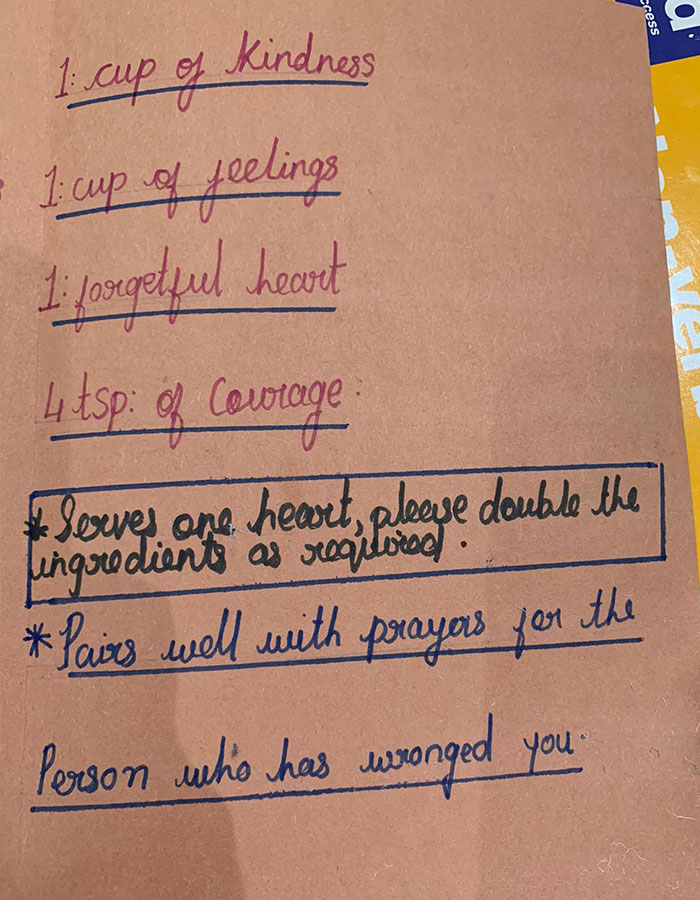 1: cup of kindness
1: cup of feelings
1: forgetful heart
4 tsp: of Courage.
* Serves one heart, please double the
ingredients as required.
* Pairs well with prayers for the
Person who has wronged you.
ccess